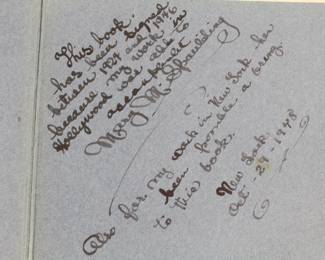 This book
has been signed
between 1924 and 1946
because my work in
Hollywood was able to
accomplish it
Mary M. Spaulding
Also for my work in New York has
been possible a bring
to this book.
New York
Oct - 29 - 1948